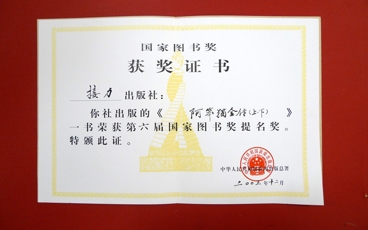 国家图书奖
获奖证书
接力出版社：
你社出版的《阿笨猫全传(上下)》
一书荣获第六届国家图书奖提名奖。
特颁此证。
中华人民共和国新闻出版总署
二〇〇三年十二月